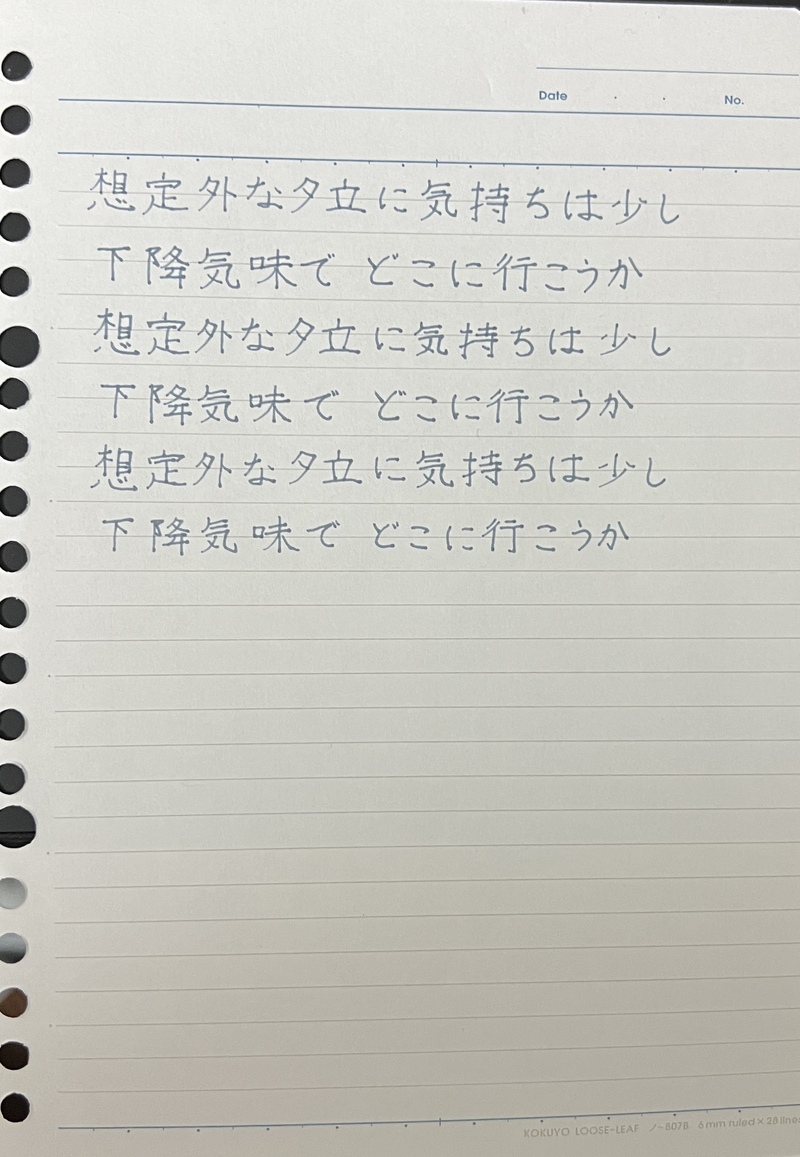 Date ・ ・ No.
想定外な夕立に気持ちは少し
下降気味で どこに行こうか
想定外な夕立に気持ちは少し
下降気味で どこに行こうか
想定外な夕立に気持ちは少し
下降気味で どこに行こうか
KOKUYO LOOSE-LEAF ノ-807B 6mm ruled×28 lines